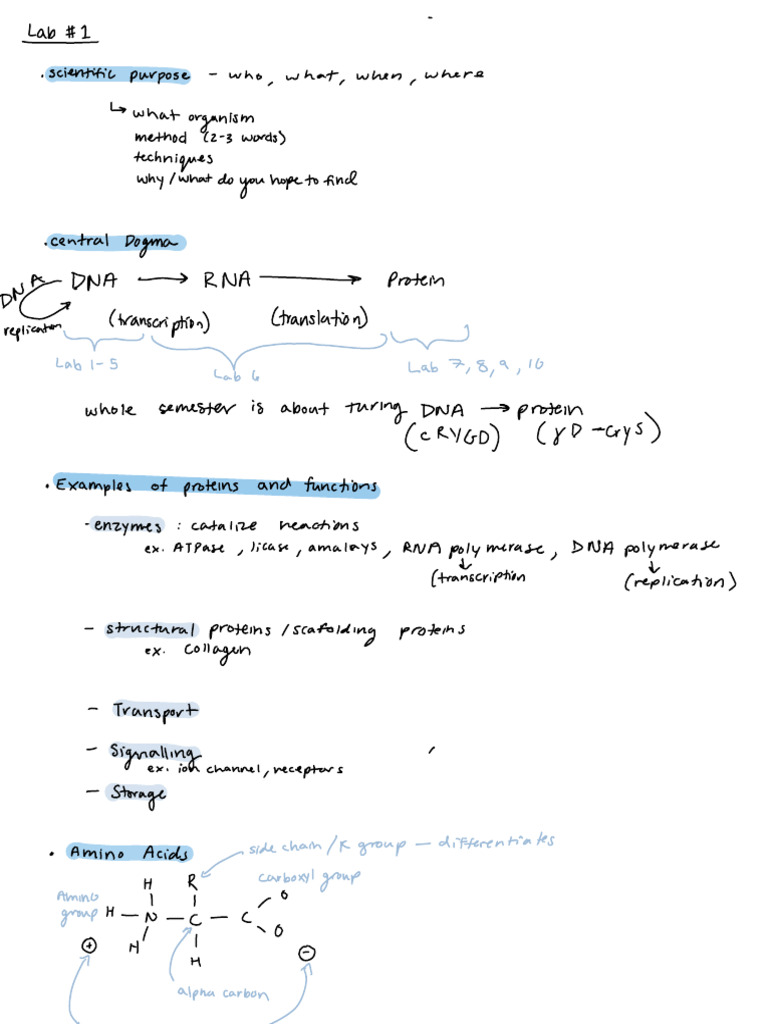 Lab #1
· scientific purpose - who, what, when, where
↳ what organism
method (2-3 words)
techniques
why/what do you hope to find
· central Dogma
DNA DNA → RNA → Protein
replication (transcription) (translation)
Lab 1-5 Lab 6 Lab 7, 8, 9, 10
whole semester is about turing DNA → protein
(cRYGD) (γD-crys)
· Examples of proteins and functions
- enzymes : catalize reactions
ex. ATPase, licase, amalays, RNA polymerase, DNA polymerase
(transcription (replication)
- structural proteins/scafolding proteins
ex. collagen
- Transport
- Signalling
ex. ion channel, receptors
- Storage
· Amino Acids
side chain/R group — differentiates
carboxyl group
Amino group
H R O
H - N - C - C
H H O
⊕ ⊖
alpha carbon